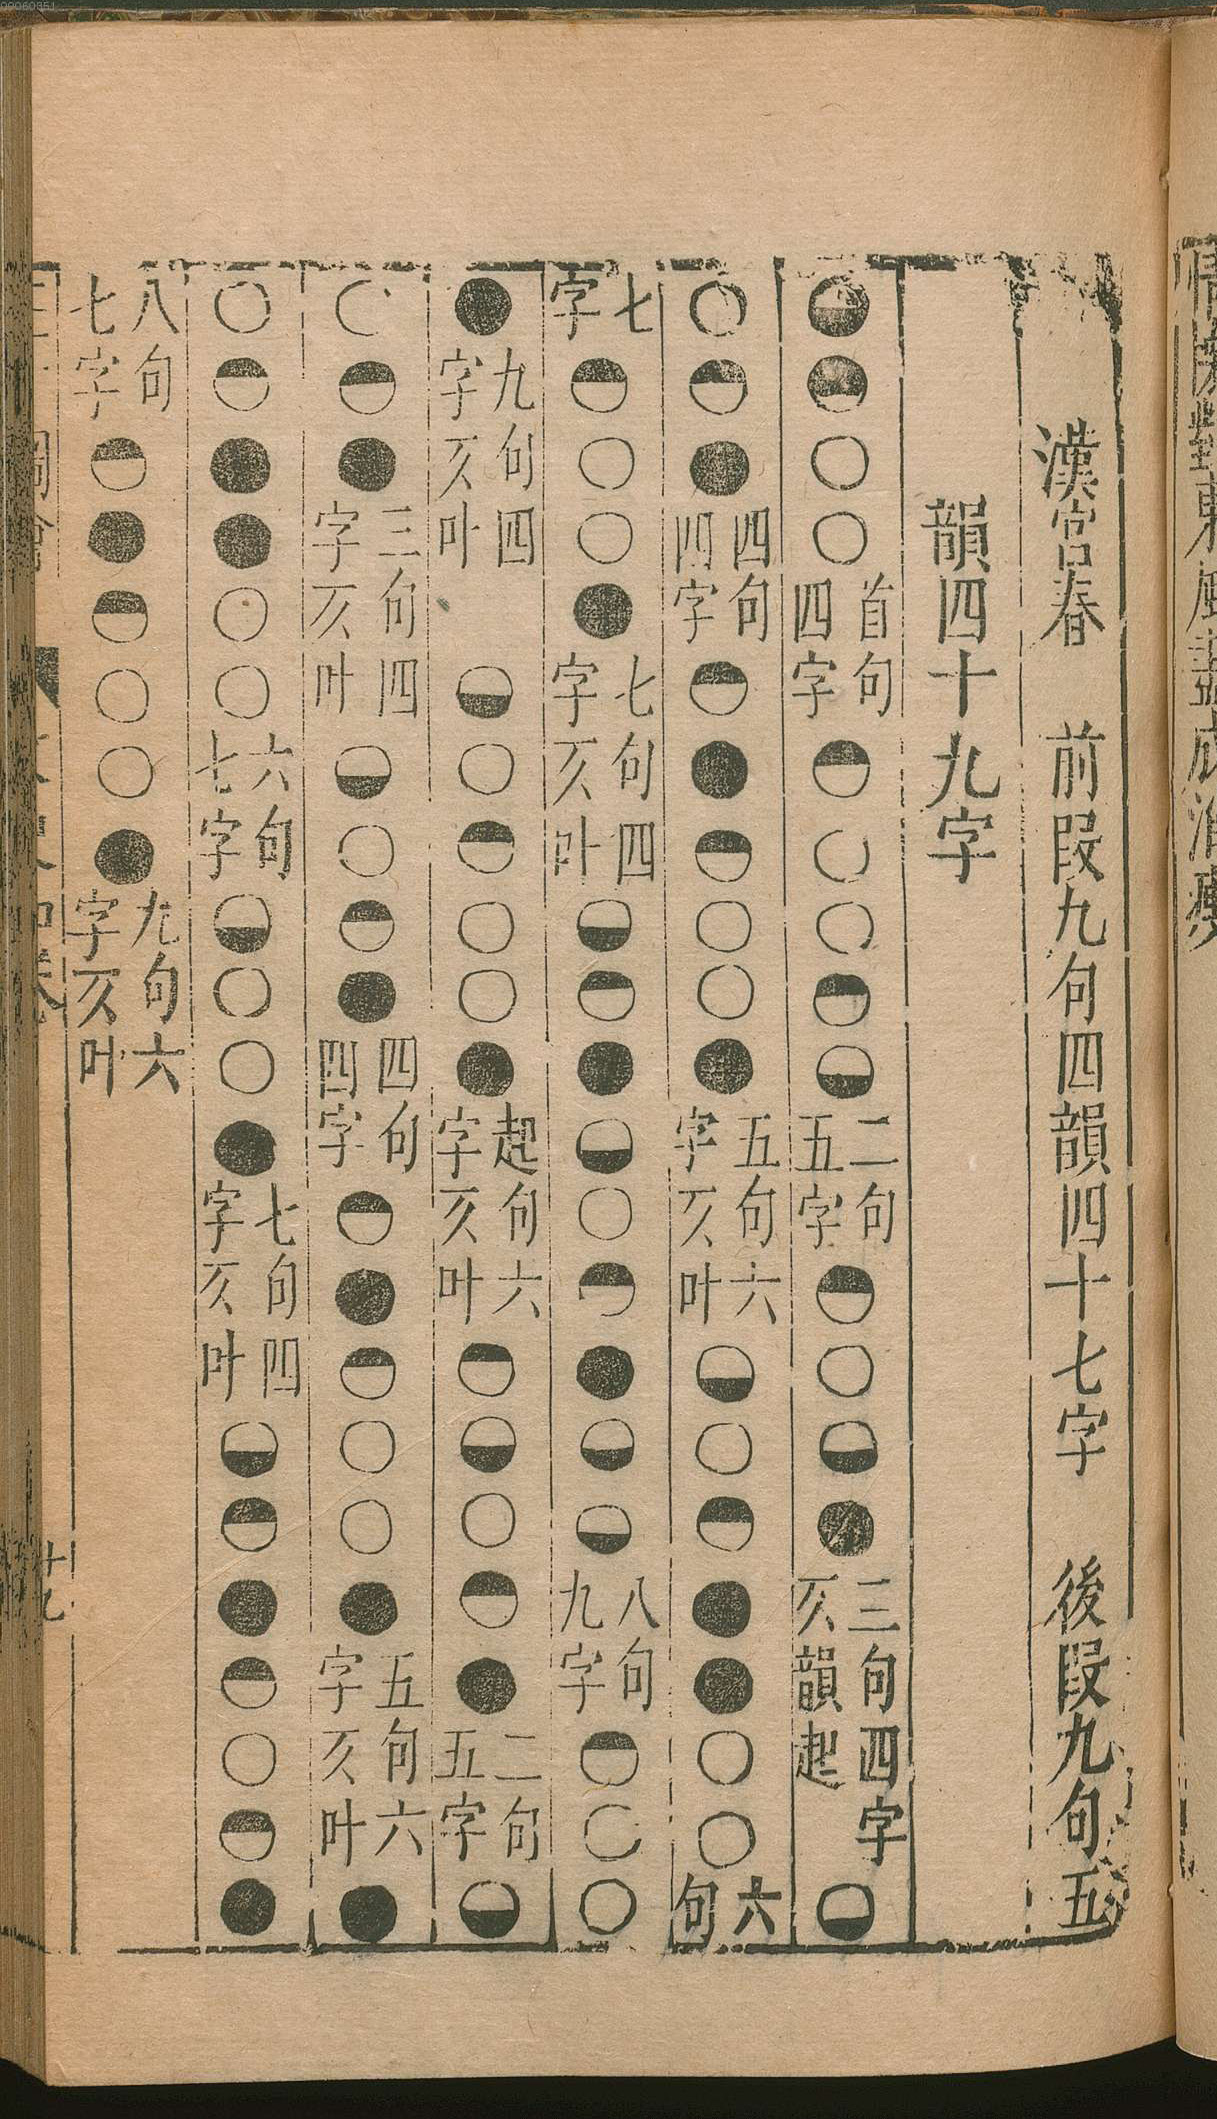 對東風盡成消瘦
漢宮春 前段九句四韻四十七字 後段九句五
韻四十九字
首句四字 二句五字 三句四字仄韻起
四句四字 五句六字仄叶 六句
七字 七句四字仄叶 八句九字
九句四字仄叶 起句六字仄叶 二句五字
三句四字仄叶 四句四字 五句六字仄叶
六句七字 七句四字仄叶
八句七字 九句六字仄叶